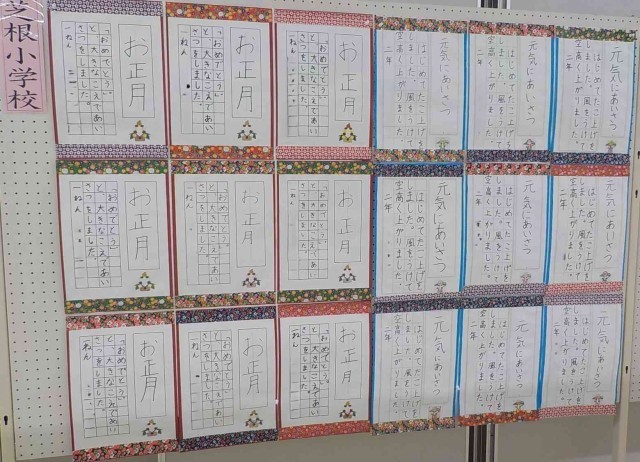 芝根小学校
お正月
「おめでとう」
と、大きなこえであい
さつをしました。
一ねん
お正月
「おめでとう」
と、大きなこえであい
さつをしました。
一ねん
お正月
「おめでとう」
と、大きなこえであい
さつをしました。
一ねん
元気にあいさつ
はじめてたこ上げを
しました。風をうけて
空高く上がりました。
二年
元気にあいさつ
はじめてたこ上げを
しました。風をうけて
空高く上がりました。
二年
元気にあいさつ
はじめてたこ上げを
しました。風をうけて
空高く上がりました。
二年
お正月
「おめでとう」
と、大きなこえであい
さつをしました。
一ねん
お正月
「おめでとう」
と、大きなこえであい
さつをしました。
一ねん
お正月
「おめでとう」
と、大きなこえであい
さつをしました。
一ねん
元気にあいさつ
はじめてたこ上げを
しました。風をうけて
空高く上がりました。
二年
元気にあいさつ
はじめてたこ上げを
しました。風をうけて
空高く上がりました。
二年
元気にあいさつ
はじめてたこ上げを
しました。風をうけて
空高く上がりました。
二年
お正月
「おめでとう」
と、大きなこえであい
さつをしました。
一ねん
お正月
「おめでとう」
と、大きなこえであい
さつをしました。
一ねん
お正月
「おめでとう」
と、大きなこえであい
さつをしました。
一ねん
元気にあいさつ
はじめてたこ上げを
しました。風をうけて
空高く上がりました。
二年
元気にあいさつ
はじめてたこ上げを
しました。風をうけて
空高く上がりました。
二年
元気にあいさつ
はじめてたこ上げを
しました。風をうけて
空高く上がりました。
二年